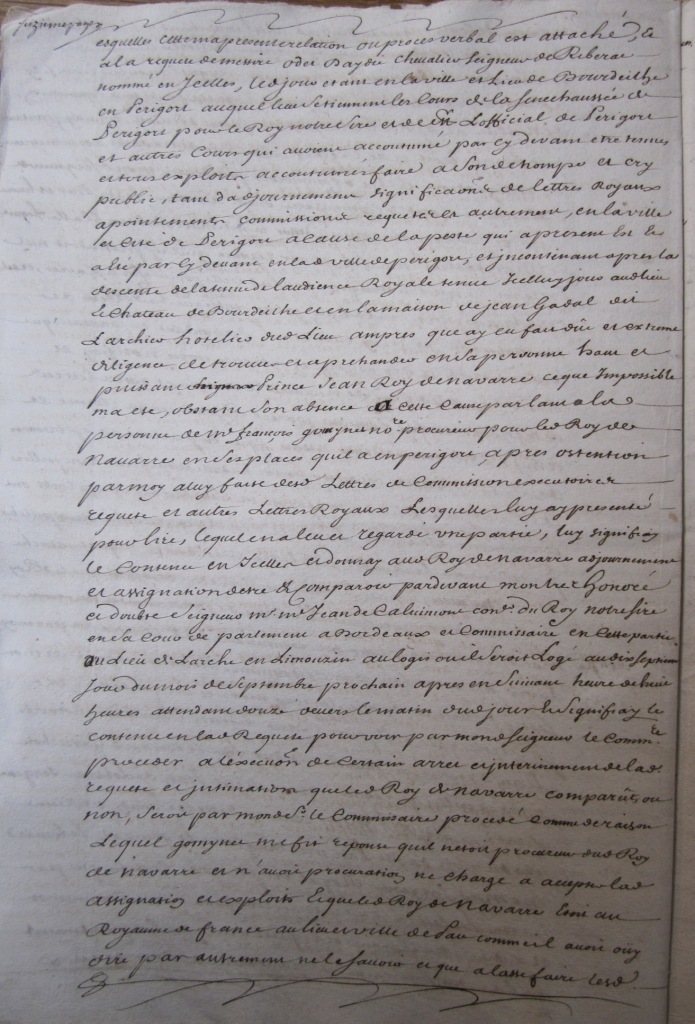 esquelles cette ma presente relation ou proces verbal est attaché, et
a la requete de messire odet Daydie chevalier seigneur de Riberac
nommé en Icelles, led jour etant en la ville et lieu de Bourdeilhe
en Perigort auquel lieu se tiennent les Cours de la senechaussée de
Perigort pour le Roy notre sire et de Lofficial de Perigort
et autres Cours qui avoient accoutumé par cy devant etre tenues
et tous exploits accoutumés faire a son de trompe et cry
public, tant dadjournement significaons de lettres Royaux
apointements commissions requestes et autrement, en la ville
et Cité de Perigort a cause de la peste qui a present est et
a eté par cy devant en lad ville de perigort, et incontinent apres la
descente de la tenue de laudience Royale tenue Icelluy jour aud lieu
le Chateau de Bourdeilhe et en la maison de jean Gadal dit
Larchier hotelier dud Lieu ampres que ay eu fait due et extreme
diligence de trouver et aprehander en sa personne haut et
puissant Prince Jean Roy de navarre ce que Impossible
ma eté, obstant son absence a cette cause parlant a la
personne de mr françois gomynet no.re procureur pour led Roy de
Navarre en ses places quil a en perigort, apres ostention
par moy a luy faite desd Lettres de Commission executoire
requete et autres Lettres Royaux Lesquelles luy ay presenté
pour lire, lequel en a leu et regardé une partie, luy signifiay
le Contenu en Icelles et donnay aud Roy de navarre adjournement
et assignation detre et Comparoir pardevant mon tres honoré
et doubté Seigneur mr me Jean de Calvimont conr. du Roy notre sire
en sa Cour de parlement a Bordeaux et Commissaire en cette partie
au Lieu de Larche en Limouzin au logis ou il seroit Logé au dix septiem
Jour du mois de Septembre prochain apres en suivant heure de huit
heures attendant douze devers le matin dud jour et Signifiay le
contenu en lad Requete pour voir par mond seigneur le Commre
proceder a lexecuon de Certain arret et interinement de lad
requete et intimation que led Roy de navarre comparut ou
non, seroit par mond sr. le Commissaire procedé comme de raison
Lequel gomynet me fit reponse quil netoit procureur dud Roy
de navarre et n'avoit procuration ne charge d accepter lad
assignation et exploits Et que led Roy de navarre Est au
Royaume de france au lieu et ville de Pau comme il avoit ouy
dire par autrement ne le savoir et que a lasse faire lesd